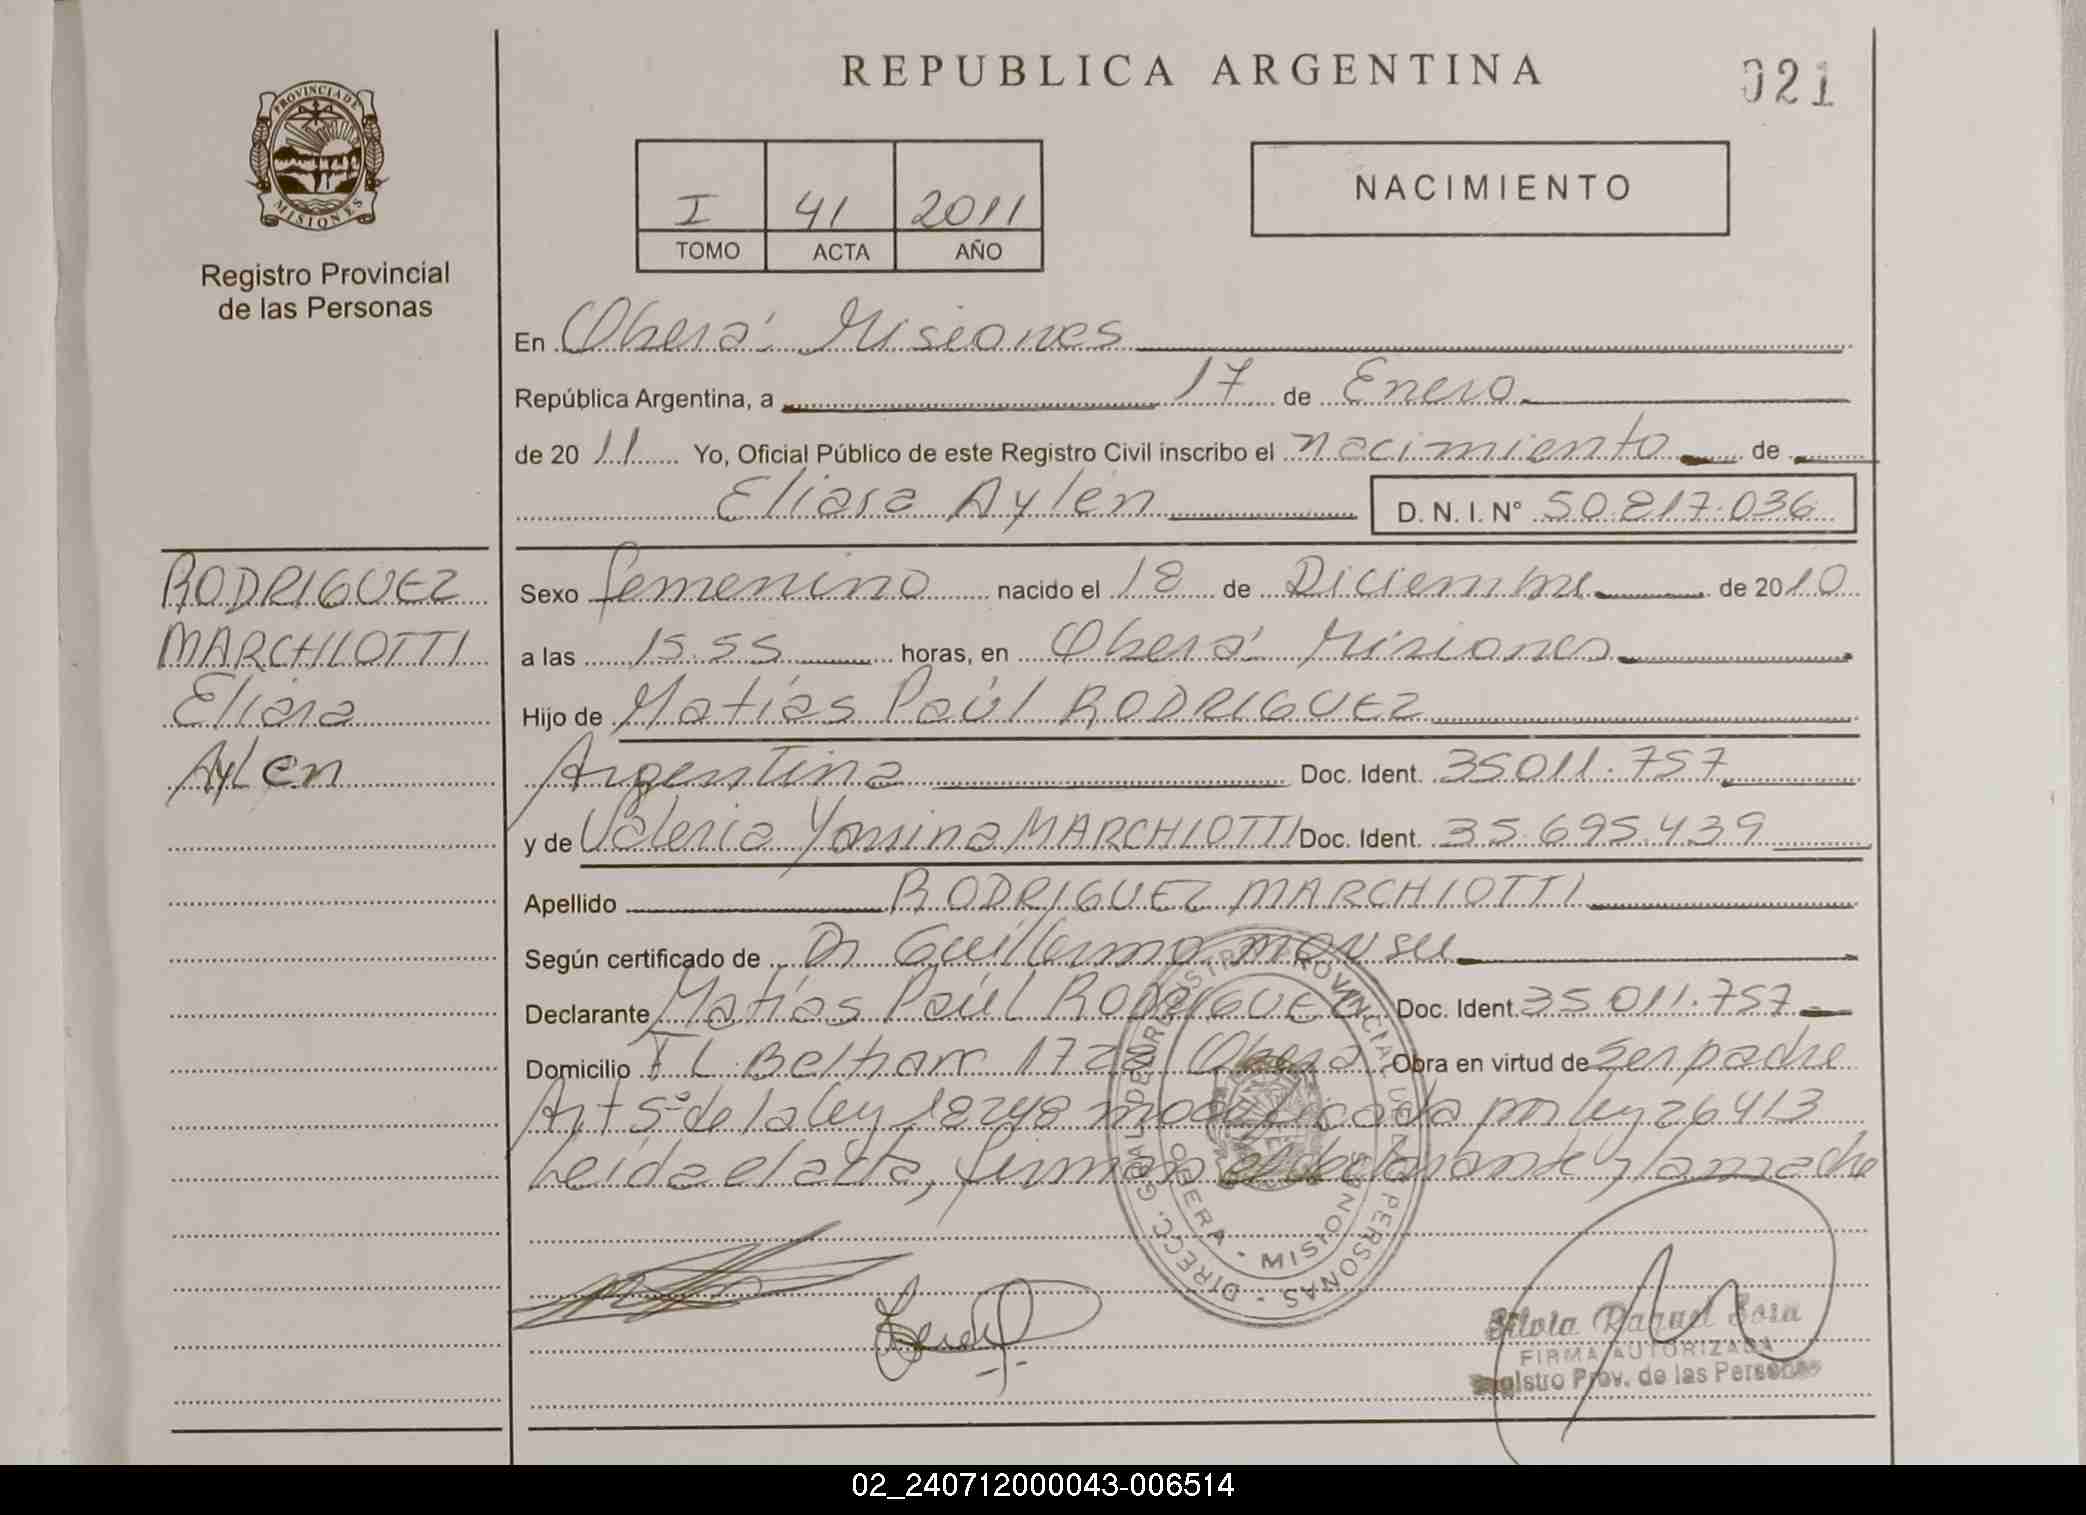 REPUBLICA ARGENTINA
021
PROVINCIA DE
MISIONES
Registro Provincial
de las Personas
I 41 2011
TOMO ACTA AÑO
NACIMIENTO
En Oberá Misiones
República Argentina, a 17 de Enero
de 2011 Yo, Oficial Público de este Registro Civil inscribo el nacimiento de
Eliara Aylen D. N. I. N° 50.817.036
RODRIGUEZ
MARCHIOTTI
Eliara
Aylen
Sexo femenino nacido el 18 de Diciembre de 2010
a las 15.55 horas, en Oberá Misiones
Hijo de Matías Paúl RODRIGUEZ
Argentina Doc. Ident. 35011.757
y de Valeria Yamina MARCHIOTTI Doc. Ident. 35.695.439
Apellido RODRIGUEZ MARCHIOTTI
Según certificado de Dr Guillermo
Declarante Matías Paúl RODRIGUEZ Doc. Ident. 35 011.757
Domicilio F L Beltran Oberá Obra en virtud de ser padre
Art 5º de la ley 18248 modificada por ley 26413
Leída el acta, firman el declarante y la madre
DIRECC. GRAL. DEL REGISTRO PROVINCIAL DE LAS PERSONAS
OBERA - MISIONES
Silvia Raquel Sosa
FIRMA AUTORIZADA
Registro Prov. de las Personas
02_240712000043-006514